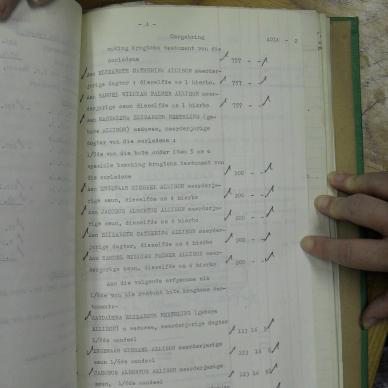 - 4 -
Oorgebring 4014 - 2
making kragtens testament van die
oorledene 757 - -
Aan ELIZABETH CATHERINA ALLISON meerder-
jarige dogter : dieselfde as 1 hierbo. 757 - -
Aan SAMUEL WILLIAM PALMER ALLISON meer-
derjarige seun dieselfde as 1 hierbo. 757 - -
Aan MAGDALENA ELIZABETH (ge-
bore ALLISON) weduwee, meerderjarige
dogter van die oorledene :
1/6de van die bate onder item 5 as 'n
spesiale bemaking kragtens testament van
die oorledene 200 - -
Aan MICHAEL ALLISON meerderja-
rige seun, dieselfde as 6 hierbo 200 - -
Aan JACOBUS ALBERTUS ALLISON meerderja-
rige seun, dieselfde as 6 hierbo 200 - -
Aan ELIZABETH CATHERINA ALLISON meerder-
jarige dogter, dieselfde as 6 hierbo 200 - -
Aan SAMUEL WILLIAM PALMER ALLISON meer-
derjarige seun, dieselfde as 6 hierbo. 200 - -
Aan die volgende erfgename elk
1/6de van die restant bate kragtens tes-
tament:-
MAGDALENA ELIZABETH (gebore
ALLISON) 'n weduwee, meerderjarige dogter
1/6de aandeel 123 16
MICHAEL ALLISON meerderjarige
seun 1/6de aandeel 123 16
JACOBUS ALBERTUS ALLISON meerderjarige
seun, 1/6de aandeel 123 16